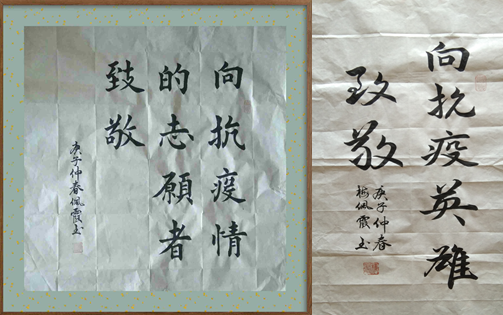 向抗疫情
的志願者
致敬
庚子仲春佩霞书
向抗疫英雄
致敬
庚子仲春
佩霞书